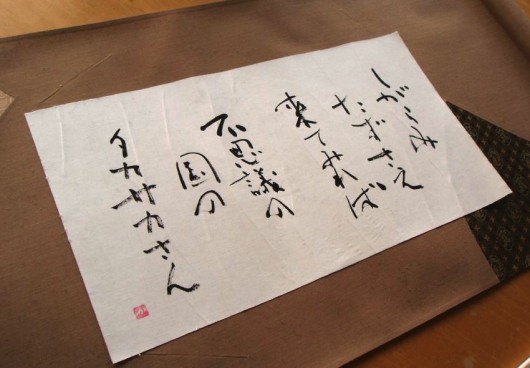 しがらみ
たずさえ
来てみれば
不思議の
国の
タカサカさん